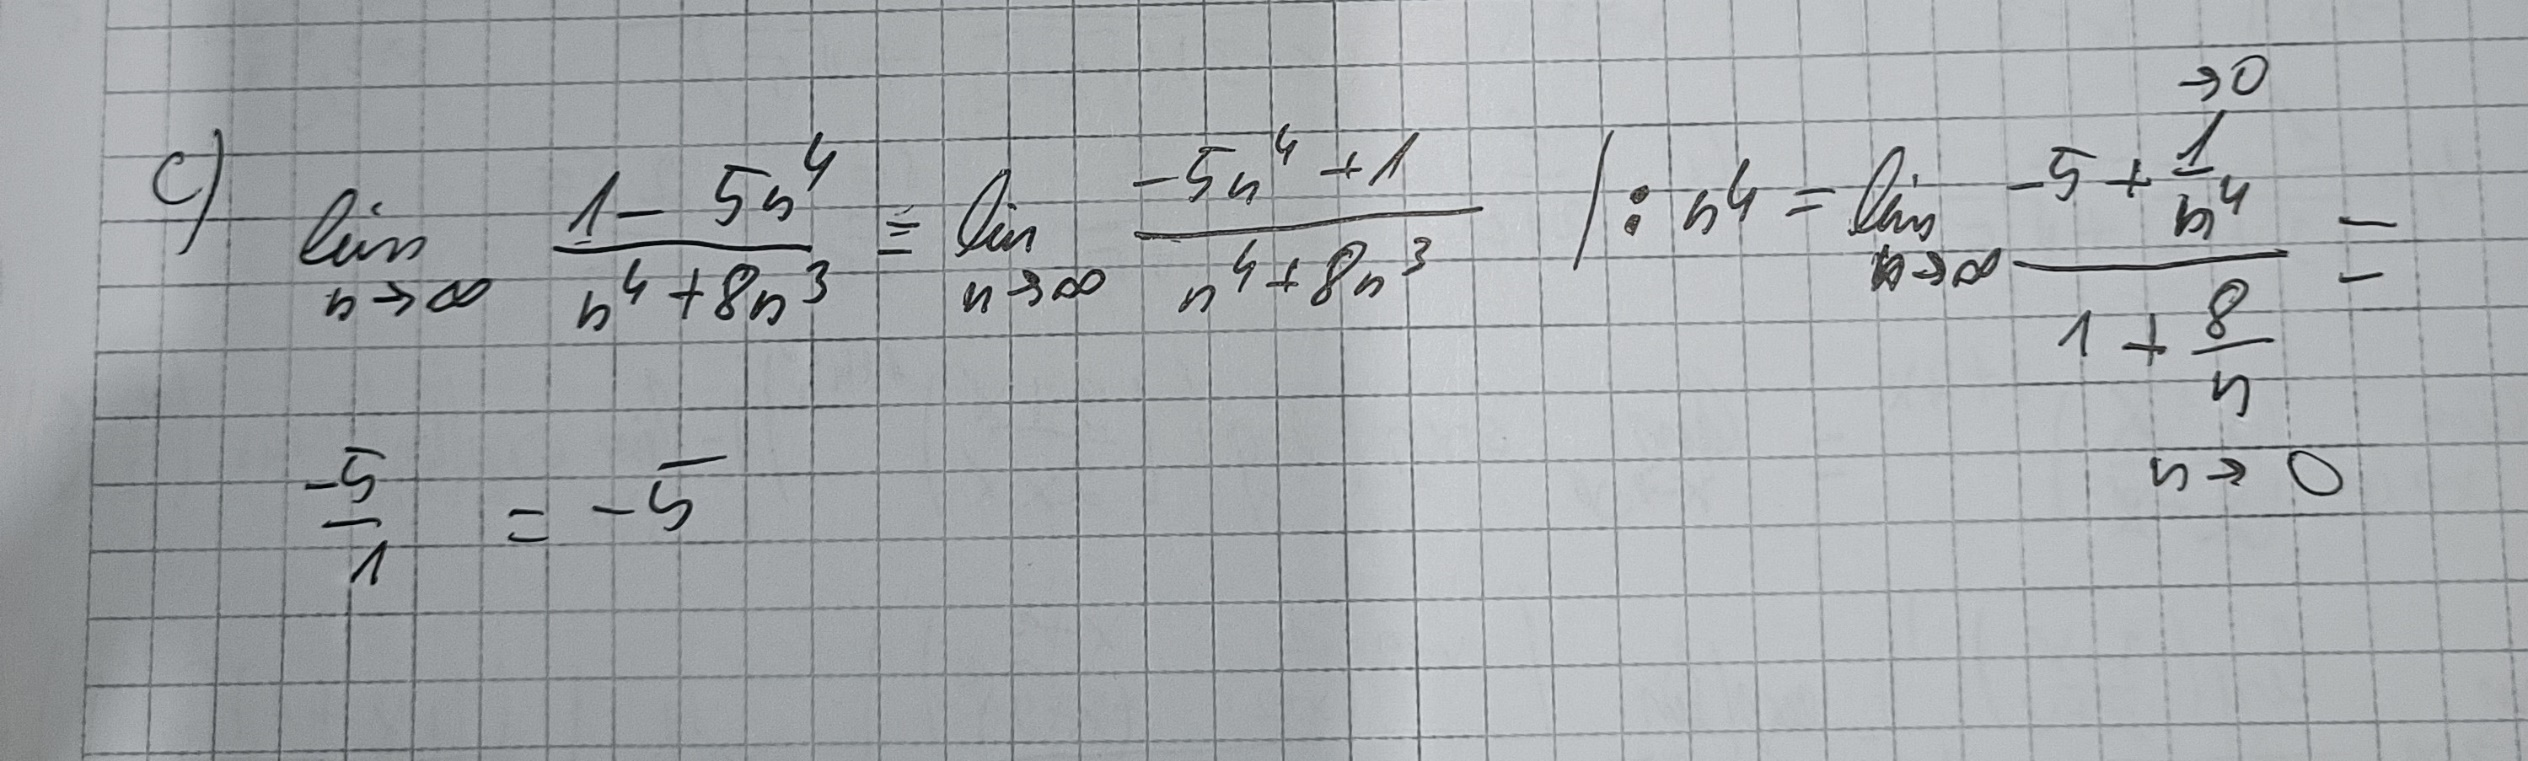 c) lim n→∞ (1 - 5n⁴)/(n⁴ + 8n³) = lim n→∞ (-5n⁴ + 1)/(n⁴ + 8n³) | : n⁴ = lim n→∞ (-5 + 1/n⁴ →0)/(1 + 8/n n→0) =
-5/1 = -5